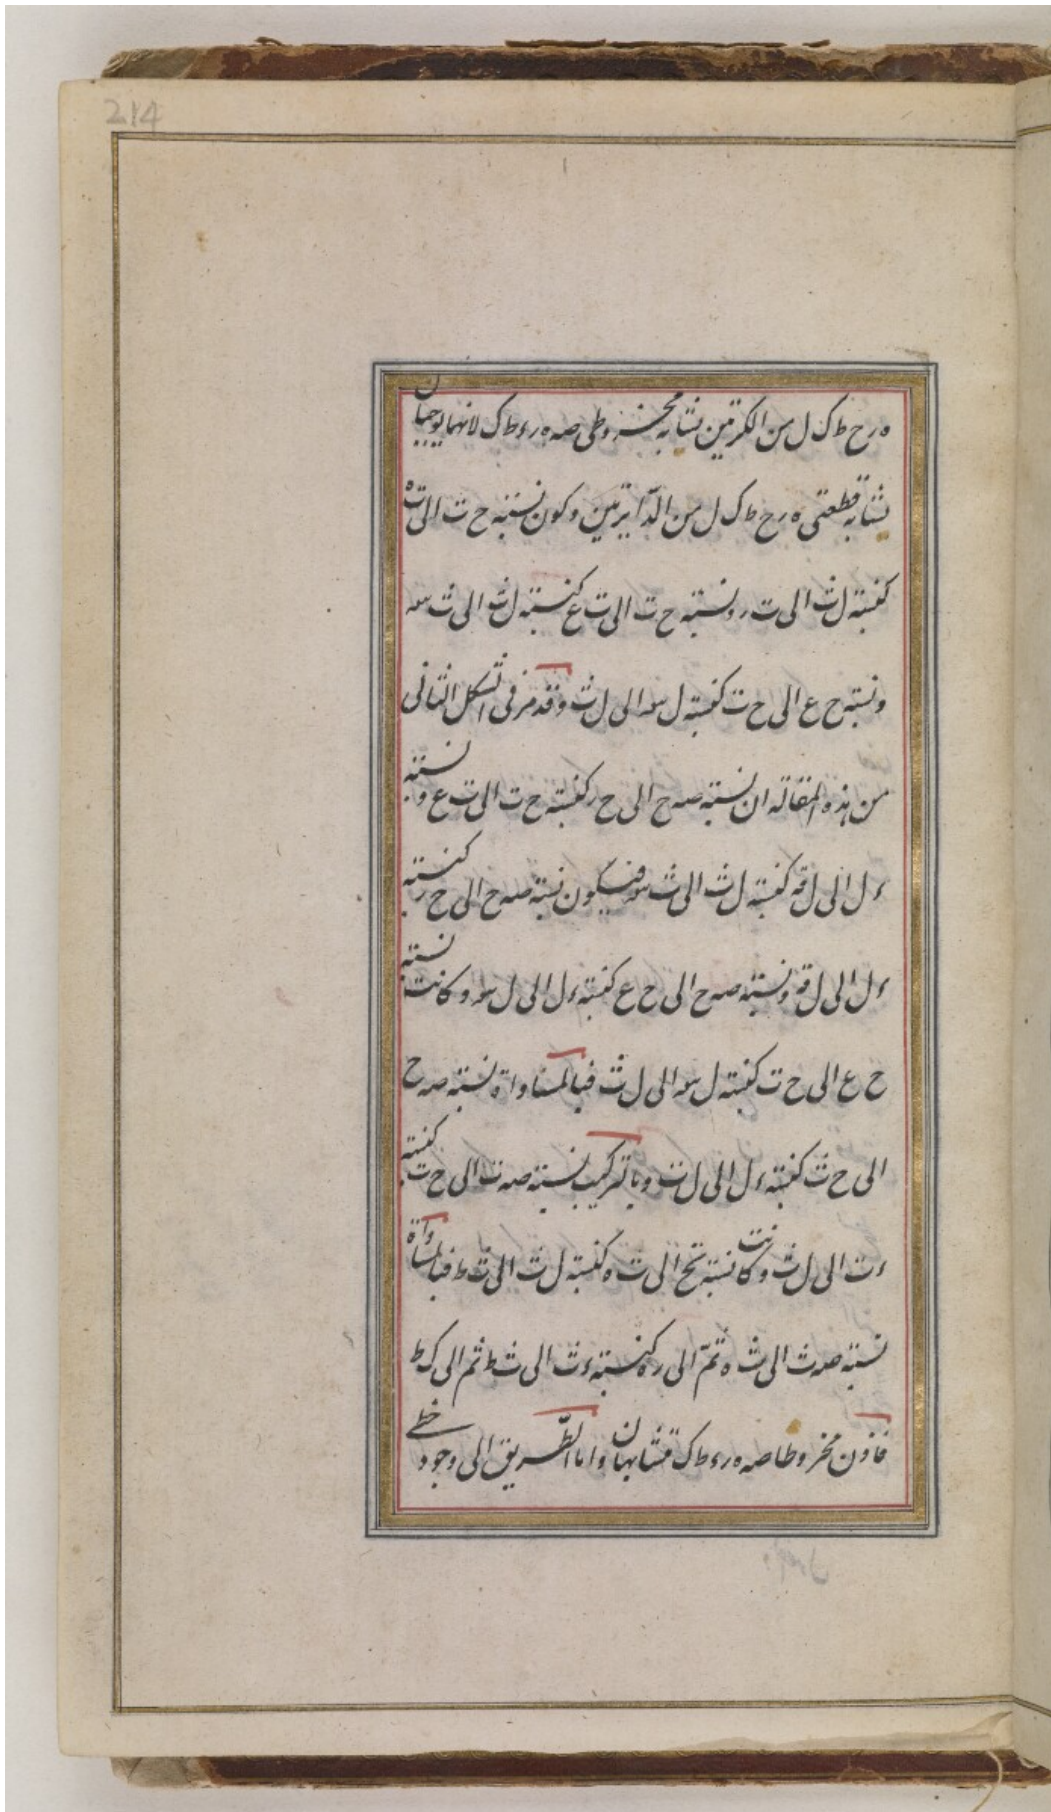 214
ه ر ح ط ك ل من الكرتين تشابه مخروطى صه ه ر ء ط ك لانهما يوجبان
تشابه قطعتى ه ر ح ط ك ل من الدّايرتين وكون نسبة ح ت الى ت ه
كنسبة ل ث الى ت ر ونسبة ح ت الى ت ع كنسبة ل ث الى ث سه
ونسبة ح ع الى ح ت كنسبة ل سه الى ل ث وقد مرّ فى الشكل الثانى
من هذه المقالة ان نسبة صه ح الى ح ر كنسبة ح ت الى ت ع ونسبة
ء ل الى ل قه كنسبة ل ث الى ث سه فيكون نسبة صه ح الى ح ر كنسبة
ء ل الى ل قه ونسبة صه ح الى ح ع كنسبة ء ل الى ل سه وكانت نسبة
ح ع الى ح ت كنسبة ل سه الى ل ث فبالمساواة نسبة صه ح
الى ح ت كنسبة ء ل الى ل ث وبالتركيب نسبة صه ت الى ح ت كنسبة
ء ث الى ل ث وكانت نسبة تح الى ت ه كنسبة ل ث الى ث ط فبالمساواة
نسبة صه ت الى ت ه ثمّ الى ر ه كنسبة ء ث الى ث ط ثم الى ك ط
فاذن مخروطا صه ه ر ء ط ك متشابهان واما الطّريق الى وجود خطى